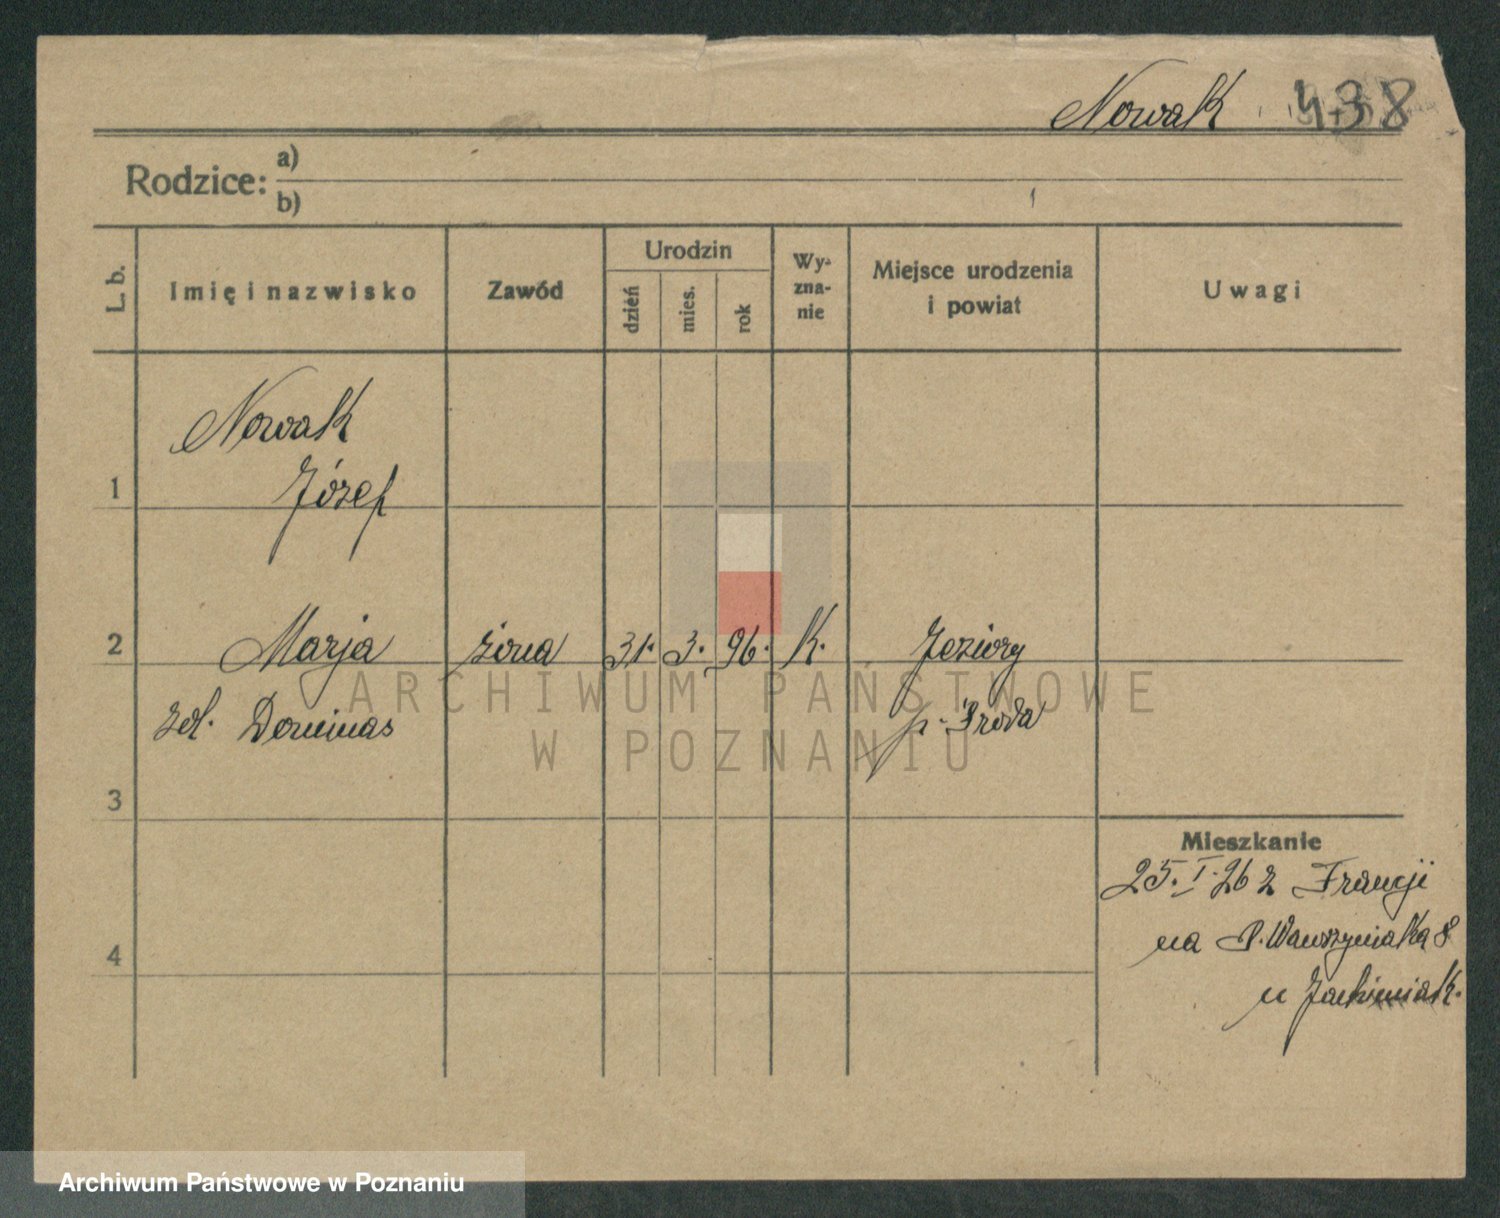 Nowak 438
Rodzice: a)
b)
L. b.
Imię i nazwisko
Zawód
Urodzin
dzień
mies.
rok
Wy-
zna-
nie
Miejsce urodzenia
i powiat
Uwagi
Nowak
1 Józef
2 Marja żona 31. 3. 96. K. Jeziory
zd. Dominas p. Środa
ARCHIWUM PAŃSTWOWE
W POZNANIU
3
Mieszkanie
25. I. 26 z Francji
4 na P. Wawrzyniaka 8
u
Archiwum Państwowe w Poznaniu